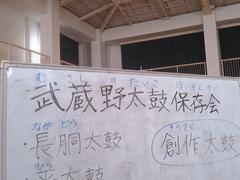 むさしのたいこほぞんかい
武蔵野太鼓保存会
ながどう
・長胴太鼓
そうさく
創作太鼓
ひら
平太鼓